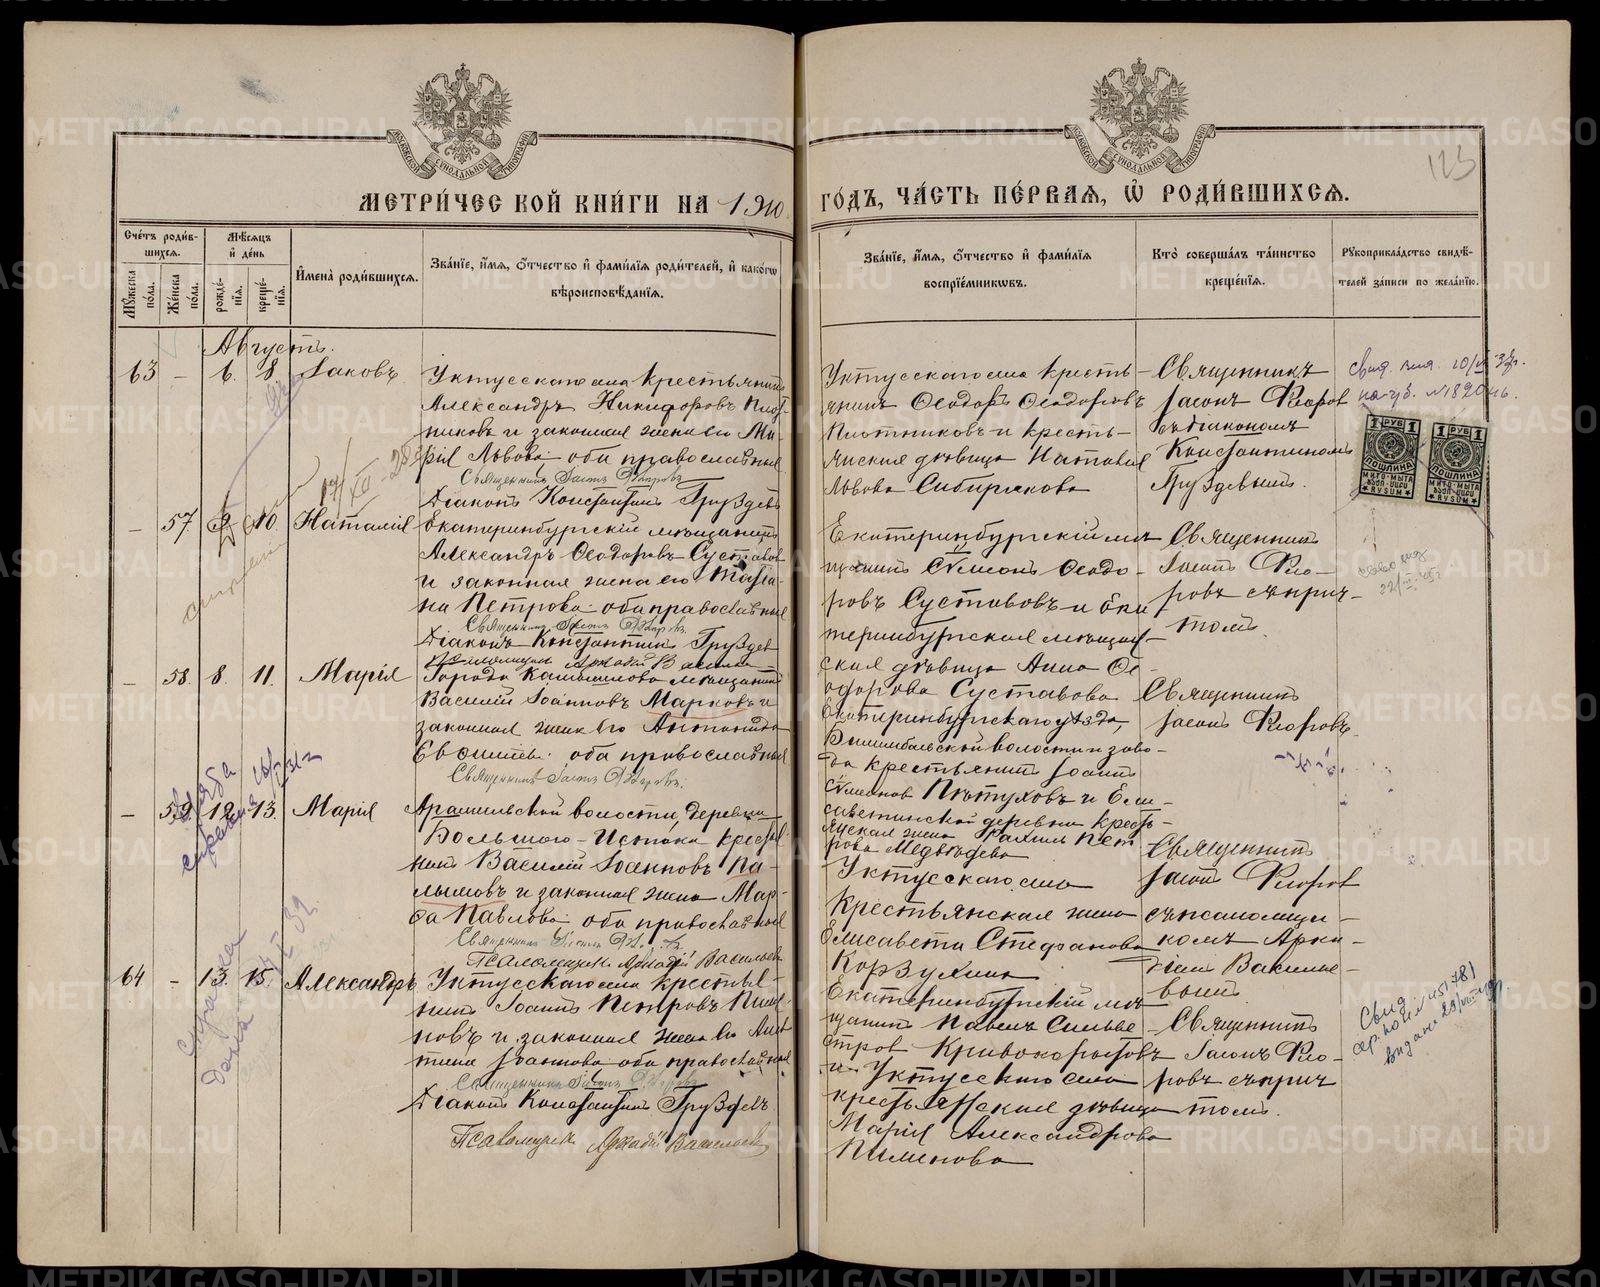 МЕТРИ́ЧЕСКОЙ КНИ́ГИ НА 1910
ГО́ДЪ, ЧА́СТЬ ПЕ́РВАЯ, Ѡ҆ РОДИ́ВШИХСѦ.
123
Сче́тъ роди́вшихсѧ.
Мꙋ́жеска по́ла.
Же́нска по́ла.
Мѣ́сѧцъ и҆ де́нь
рожде́нїѧ.
креще́нїѧ.
И҆мена̀ роди́вшихсѧ.
Зва́нїе, и҆́мѧ, ѻ҆́тчество и҆ фами́лїѧ роди́телей, и҆ како́гѡ
вѣроисповѣ́данїѧ.
Зва́нїе, и҆́мѧ, ѻ҆́тчество и҆ фами́лїѧ
воспрїе́мникѡвъ.
Кто̀ соверша́лъ та́инство
креще́нїѧ.
Рꙋкоприкла́дство свидѣ́-
телей за́писи по жела́нїю.
Августъ.
63 - 6. 8. Іаковъ
Уктусскаго села крестьянинъ
Александръ Никифоровъ Плот-
никовъ и законная жена его Ма-
рія Львова оба православные
Діаконъ Константинъ Груздевъ
Уктусскаго села кресть-
янинъ Ѳеодоръ Ѳеодоровъ
Плотниковъ и кресть-
янская дѣвица Наталія
Львова Сибирякова
Священникъ
Іасонъ Флоровъ
съ діакономъ
Константиномъ
Груздевымъ.
1 РУБ 1
ПОШЛИНА
1 РУБ 1
ПОШЛИНА
- 57 9 10. Наталія
Екатеринбургскій мѣщанинъ
Александръ Ѳеодоровъ Суставовъ
и законная жена его Татіа-
на Петрова оба православные
Діаконъ Константинъ Груздевъ
Екатеринбургскій мѣ-
щанинъ Сѵмеонъ Ѳеодо-
ровъ Суставовъ и Ека-
теринбургская мѣщан-
ская дѣвица Анна Ѳе-
одорова Суставова
Священникъ
Іасонъ Фло-
ровъ съ прич-
томъ.
- 58. 8. 11. Марія
Города Камышлова мѣщанинъ
Василій Іоанновъ Марковъ и
законная жена его Антонида
Евѳиміева оба православные
Священникъ Іасонъ Флоровъ.
Екатеринбургскаго уѣзда,
Билимбаевской волости и заво-
да крестьянинъ Іоаннъ
Сѵмеоновъ Пѣтуховъ и Ели-
саветинской деревни кресть-
янская жена Рахиль Пет-
рова Медвѣдева
Священникъ
Іасонъ Флоровъ.
- 59. 12. 13. Марія
Арамильской волости, деревни
Большого-Истока крестья-
нинъ Василій Іоанновъ Па-
лымовъ и законная жена Мар-
ѳа Павлова оба православные
Псаломщикъ Аркадій Васильевъ
Уктусскаго села
крестьянская жена
Елисавета Стефанова
Корзухина
Священникъ
Іасонъ Флоровъ
съ псаломщи-
комъ Арка-
діемъ Василье-
вымъ
64 - 13. 15. Александръ
Уктусскаго села крестья-
нинъ Іоаннъ Петровъ Пиме-
новъ и законная жена его Анг-
оба православные
Діаконъ Константинъ Груздевъ
Псаломщикъ Аркадій Васильевъ
Екатеринбургскій мѣ-
щанинъ Павелъ Сильве-
стровъ Кривокорытовъ
и Уктусскаго села
крестьянская дѣвица
Марія Александрова
Пименова
Священникъ
Іасонъ Фло-
ровъ съ прич-
томъ.